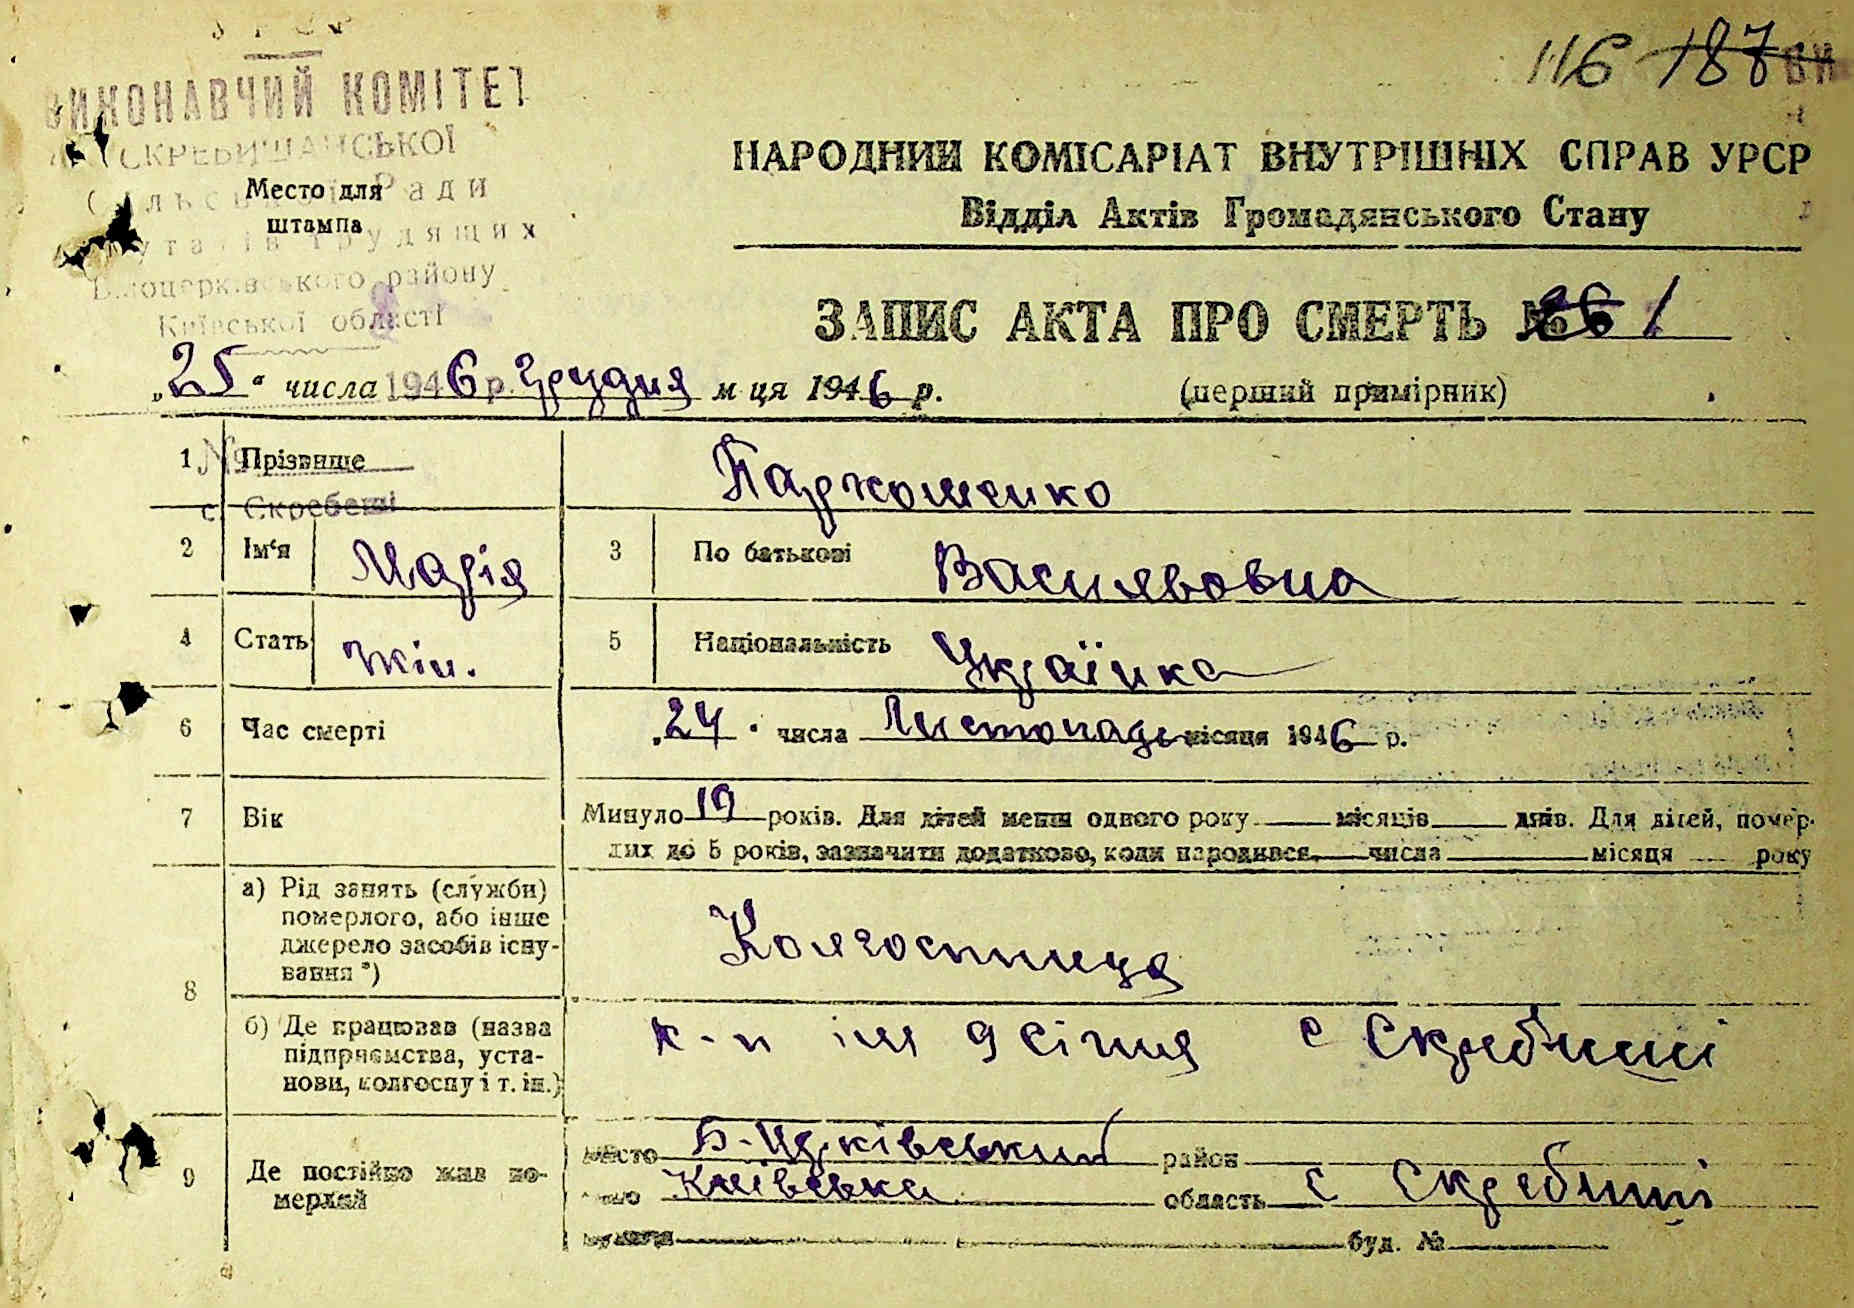 УРСР
ВИКОНАВЧИЙ КОМІТЕТ
СКРЕБИШАНСЬКОЇ
Сільської Ради
Депутатів Трудящих
Білоцерківського району
Київської області
Место для
штампа
116 187
НАРОДНИЙ КОМІСАРІАТ ВНУТРІШНІХ СПРАВ УРСР
Відділ Актів Громадянського Стану
ЗАПИС АКТА ПРО СМЕРТЬ № 1
„25“ числа 1946 р. Грудня м-ця 1946 р. (перший примірник)
1 № Прізвище
с. Скребеші
2 Ім‘я Марія 3 По батькові Васильовна
4 Стать жін. 5 Національність Українка
6 Час смерті „24“ числа Листопада місяця 1946 р.
7 Вік Минуло 19 років. Для дітей менш одного року місяців днів. Для дітей, помер-
лих до 5 років, зазначити додатково, коли народився числа місяця року
8 а) Рід занять (служби)
померлого, або інше
джерело засобів існу-
вання *)
Колгоспниця
б) Де працював (назва
підприємства, уста-
нови, колгоспу і т. ін.)
к-п ім 9 січня с Скребиші
9 Де постійно жив по-
мерлий
место Б-Церківський район
Київська область с Скребиші
вулиця буд. №